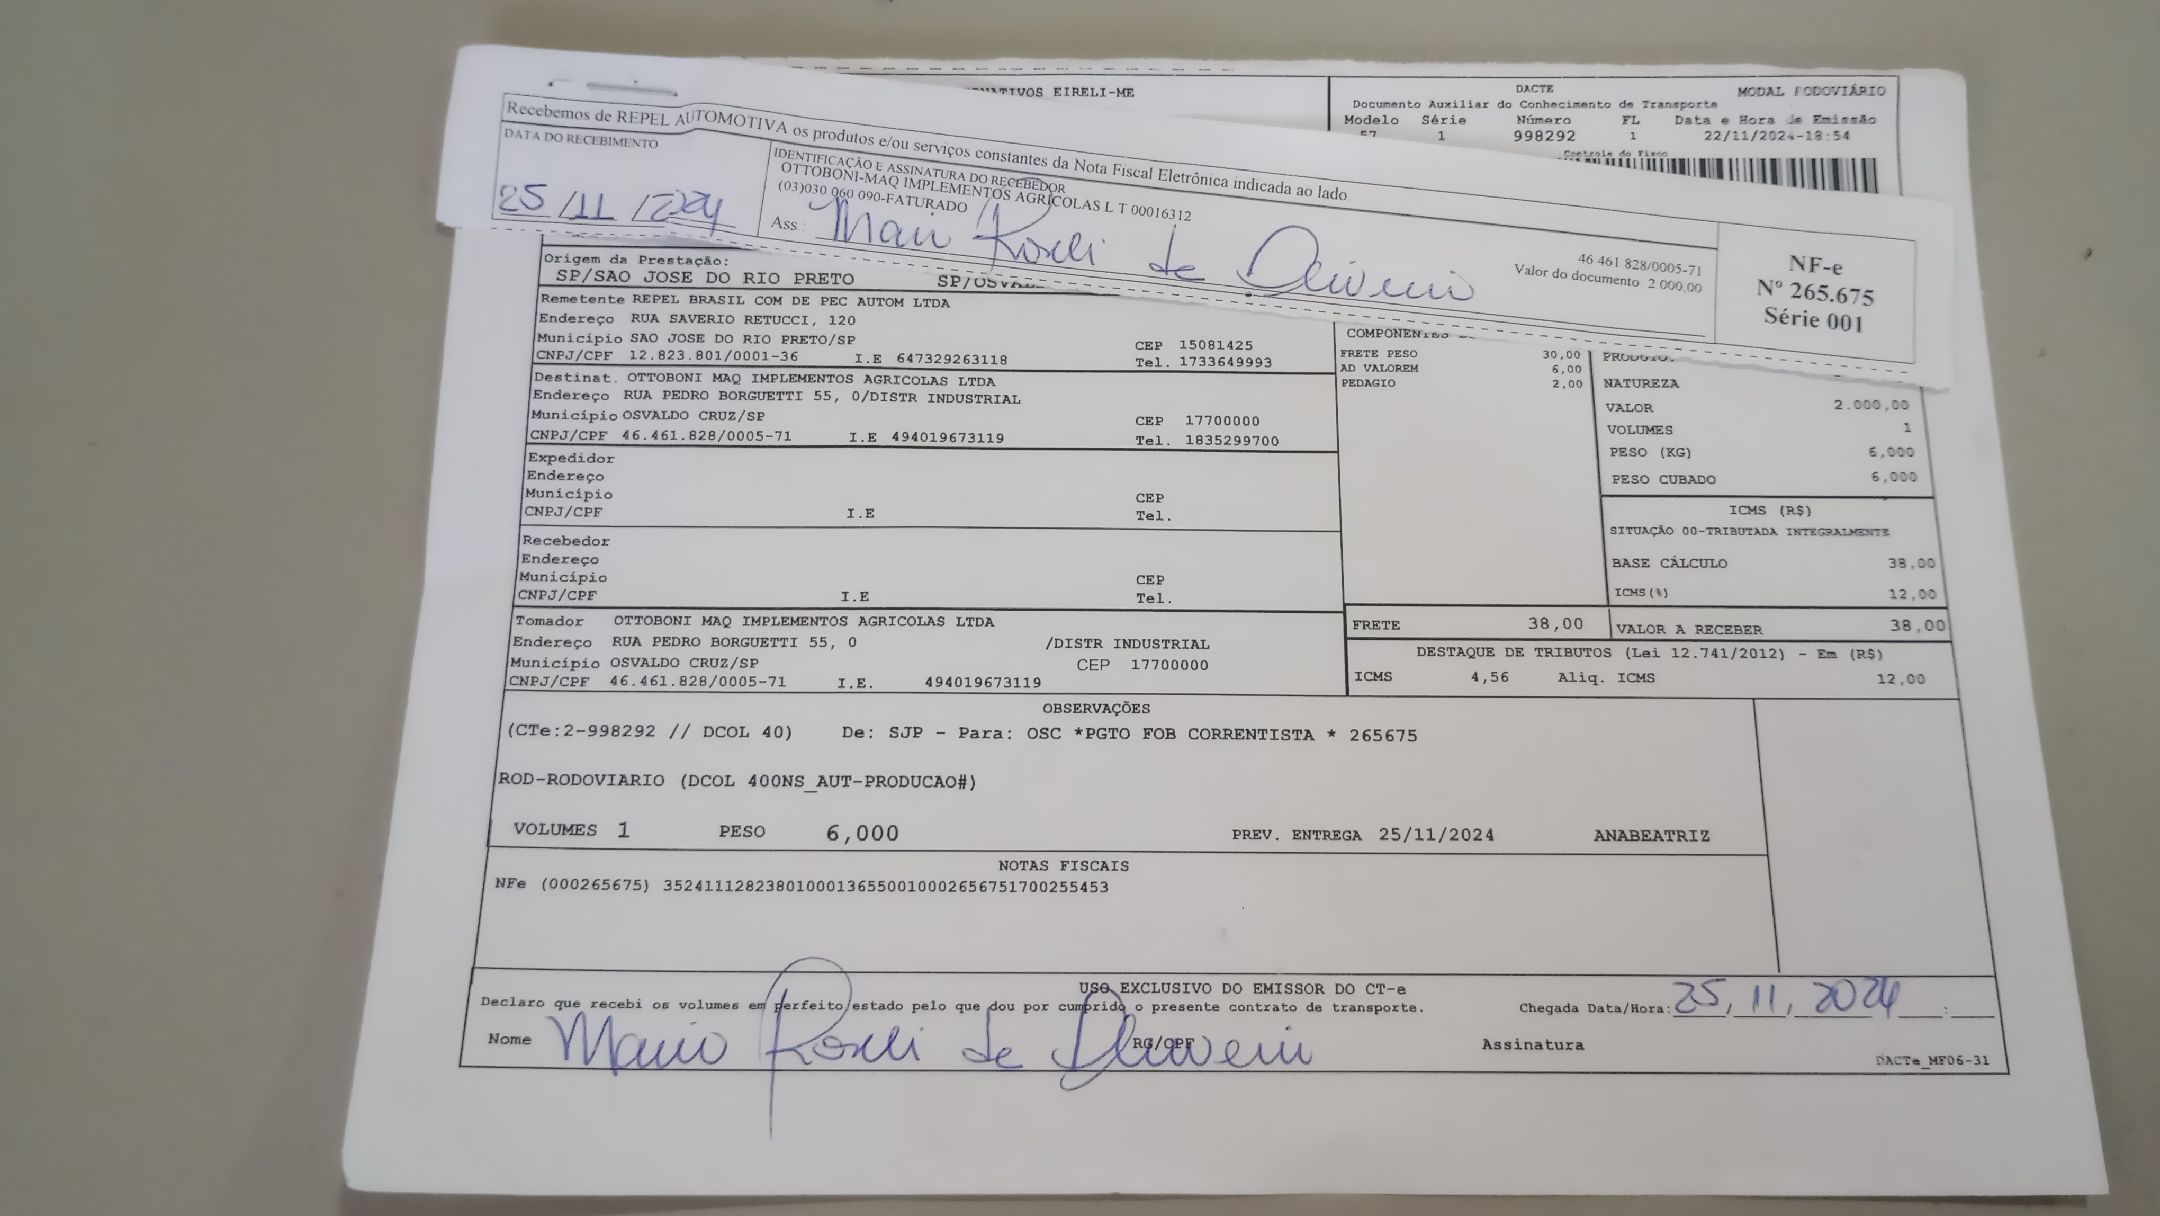 EIRELI-ME
DACTE
MODAL RODOVIÁRIO
Documento Auxiliar do Conhecimento de Transporte
Modelo Série Número FL Data e Hora de Emissão
57 1 998292 1 22/11/2024-18:54
Controle do Fisco
Recebemos de REPEL AUTOMOTIVA os produtos e/ou serviços constantes da Nota Fiscal Eletrônica indicada ao lado
DATA DO RECEBIMENTO
25/11/2024
IDENTIFICAÇÃO E ASSINATURA DO RECEBEDOR
OTTOBONI-MAQ IMPLEMENTOS AGRICOLAS L T 00016312
(03)030 060 090-FATURADO
Ass.: Roseli de Oliveira
46 461 828/0005-71
Valor do documento 2 000,00
NF-e
Nº 265.675
Série 001
Origem da Prestação:
SP/SAO JOSE DO RIO PRETO
Remetente REPEL BRASIL COM DE PEC AUTOM LTDA
Endereço RUA SAVERIO RETUCCI, 120
Município SAO JOSE DO RIO PRETO/SP CEP 15081425
CNPJ/CPF 12.823.801/0001-36 I.E 647329263118 Tel. 1733649993
Destinat. OTTOBONI MAQ IMPLEMENTOS AGRICOLAS LTDA
Endereço RUA PEDRO BORGUETTI 55, 0/DISTR INDUSTRIAL
Município OSVALDO CRUZ/SP CEP 17700000
CNPJ/CPF 46.461.828/0005-71 I.E 494019673119 Tel. 1835299700
Expedidor
Endereço
Município CEP
CNPJ/CPF I.E Tel.
Recebedor
Endereço
Município CEP
CNPJ/CPF I.E Tel.
Tomador OTTOBONI MAQ IMPLEMENTOS AGRICOLAS LTDA
Endereço RUA PEDRO BORGUETTI 55, 0 /DISTR INDUSTRIAL
Município OSVALDO CRUZ/SP CEP 17700000
CNPJ/CPF 46.461.828/0005-71 I.E. 494019673119
FRETE PESO 30,00
AD VALOREM 6,00
PEDAGIO 2,00
NATUREZA
VALOR 2.000,00
VOLUMES 1
PESO (KG) 6,000
PESO CUBADO 6,000
ICMS (R$)
SITUAÇÃO 00-TRIBUTADA INTEGRALMENTE
BASE CÁLCULO 38,00
ICMS(%) 12,00
FRETE 38,00 VALOR A RECEBER 38,00
DESTAQUE DE TRIBUTOS (Lei 12.741/2012) - Em (R$)
ICMS 4,56 Aliq. ICMS 12,00
OBSERVAÇÕES
(CTe:2-998292 // DCOL 40) De: SJP - Para: OSC *PGTO FOB CORRENTISTA * 265675
ROD-RODOVIARIO (DCOL 400NS_AUT-PRODUCAO#)
VOLUMES 1 PESO 6,000 PREV. ENTREGA 25/11/2024 ANABEATRIZ
NOTAS FISCAIS
NFe (000265675) 35241112823801000136550010002656751700255453
USO EXCLUSIVO DO EMISSOR DO CT-e
Declaro que recebi os volumes em perfeito estado pelo que dou por cumprido o presente contrato de transporte.
Chegada Data/Hora: 25/11/2024 :
Nome Roseli de Oliveira RG/CPF Assinatura
DACTe_MF06-31